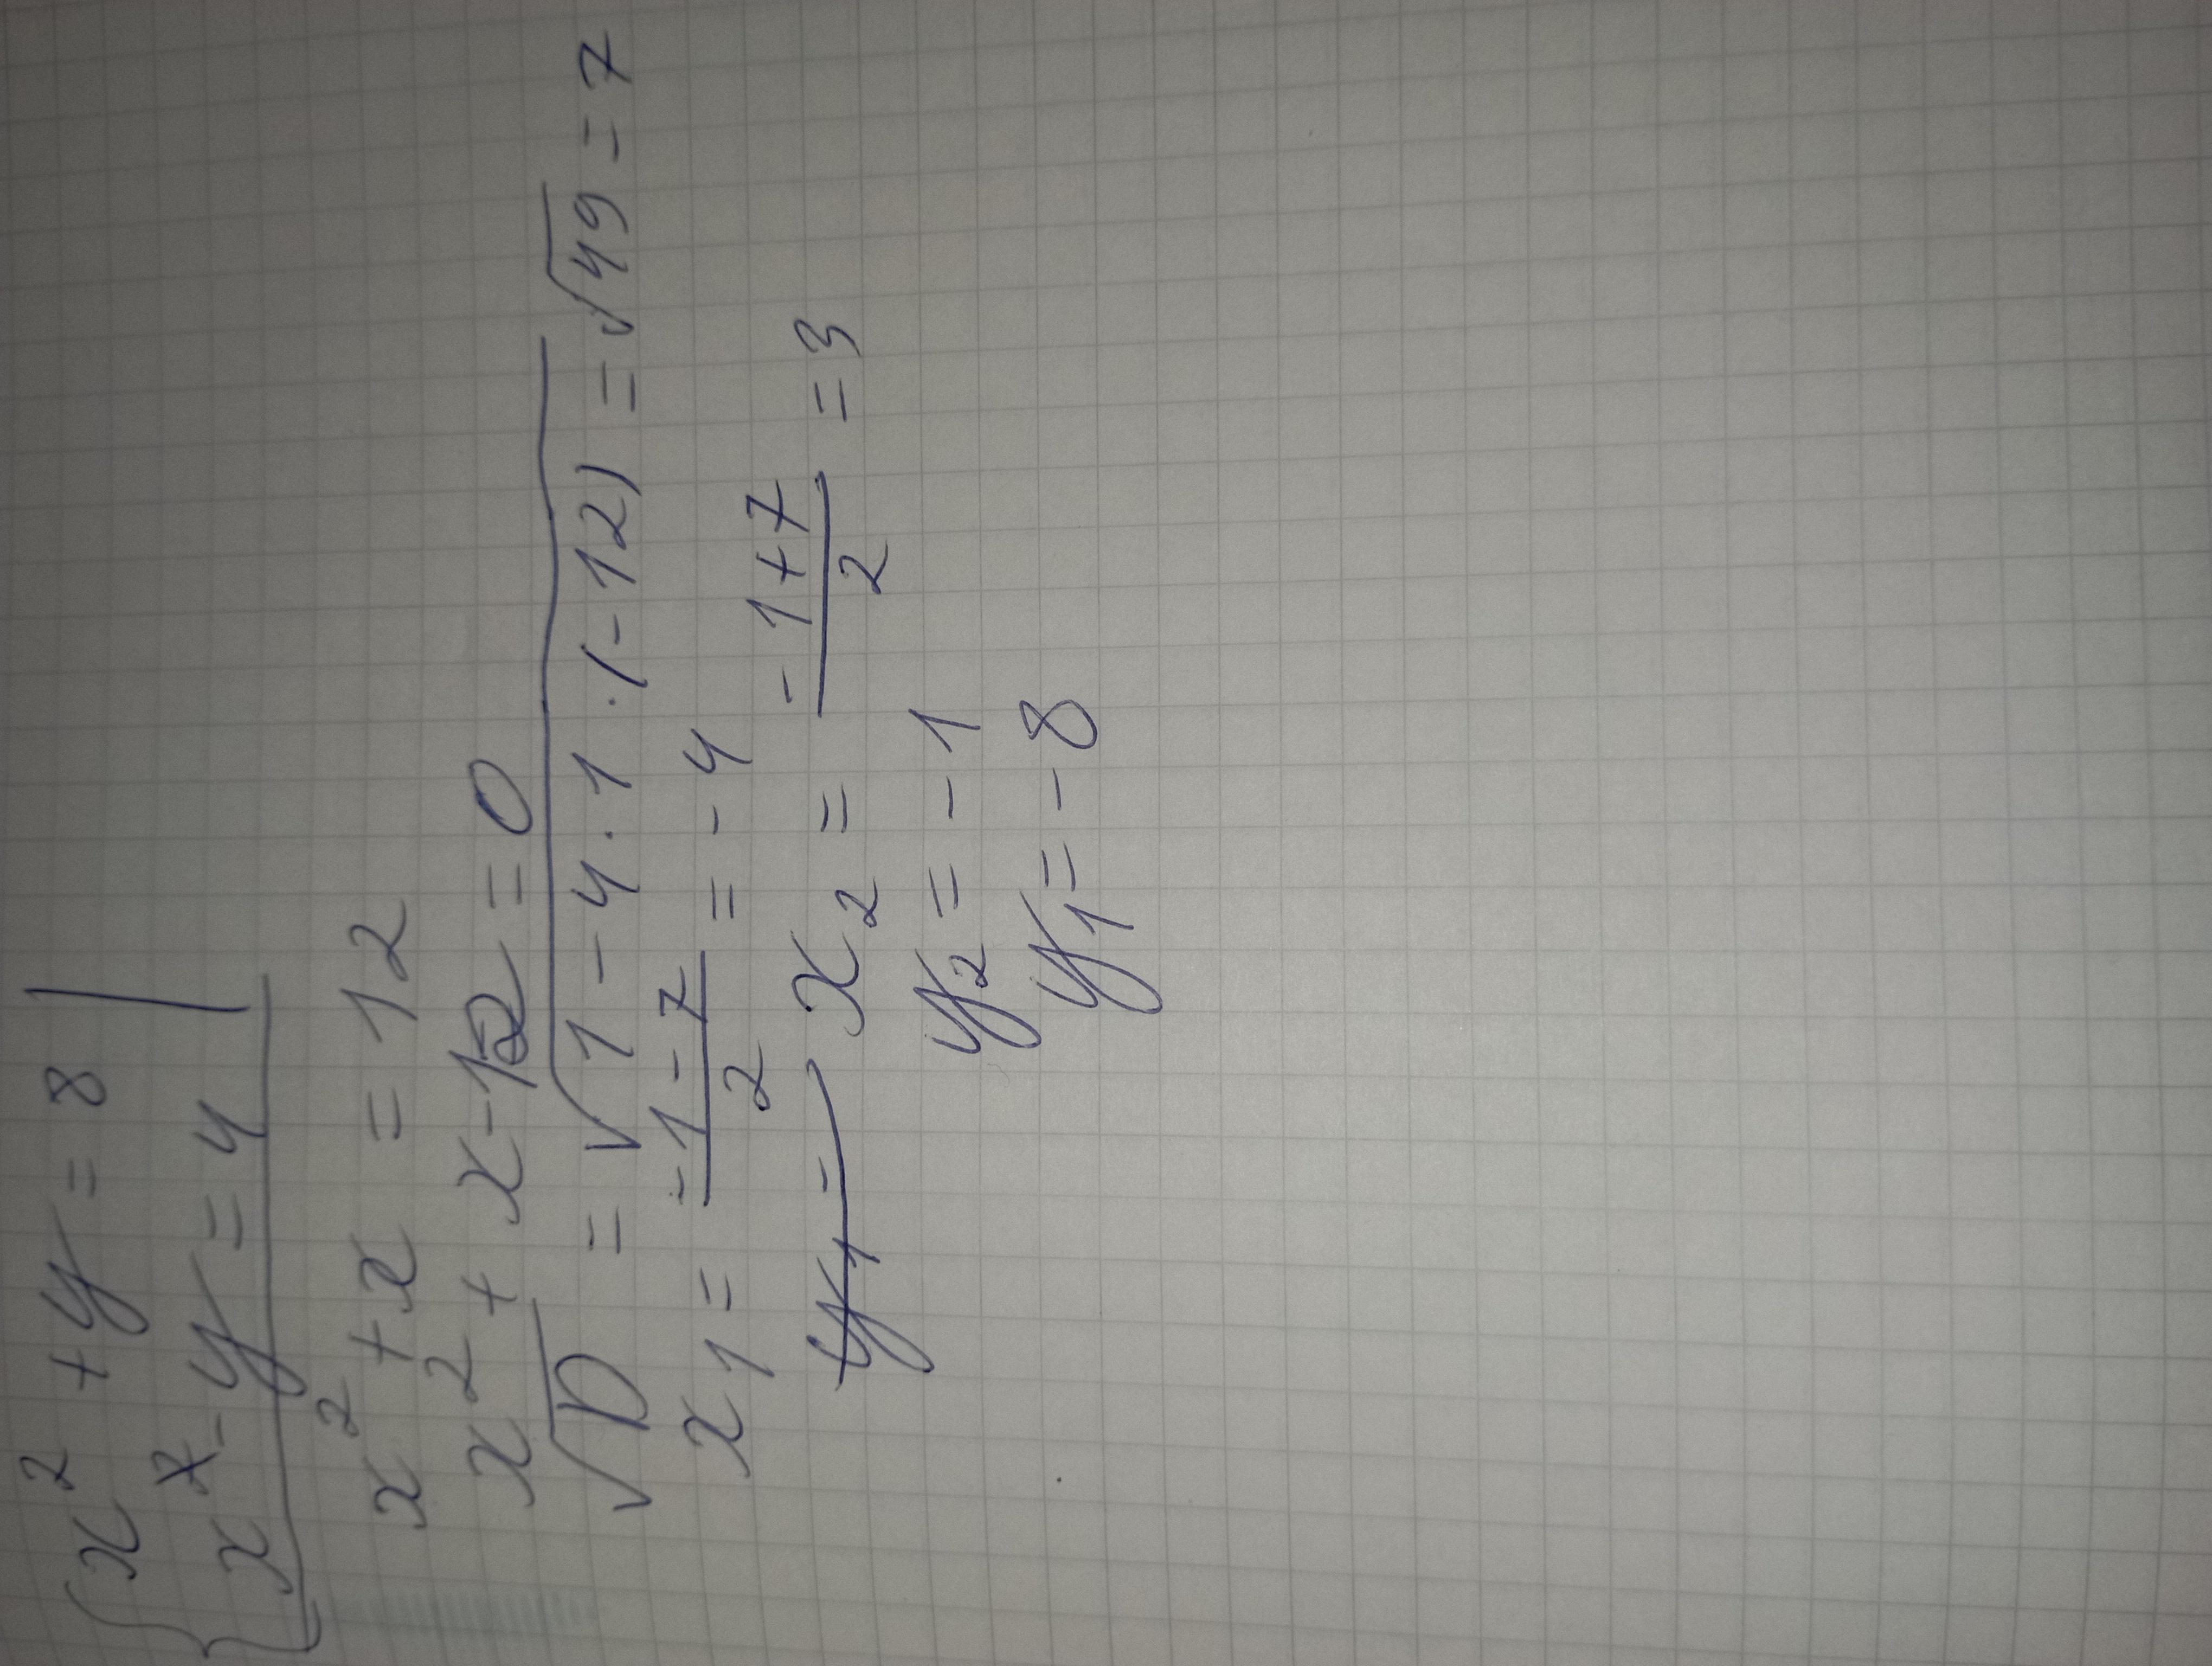 x² + y = 8
x - y = 4
x² + x = 12
x² + x - 12 = 0
√D = √1 - 4 · 1 · (-12) = √49 = 7
x₁ = -1 - 7 / 2 = -4
x₂ = -1 + 7 / 2 = 3
y₂ = -1
y₁ = -8